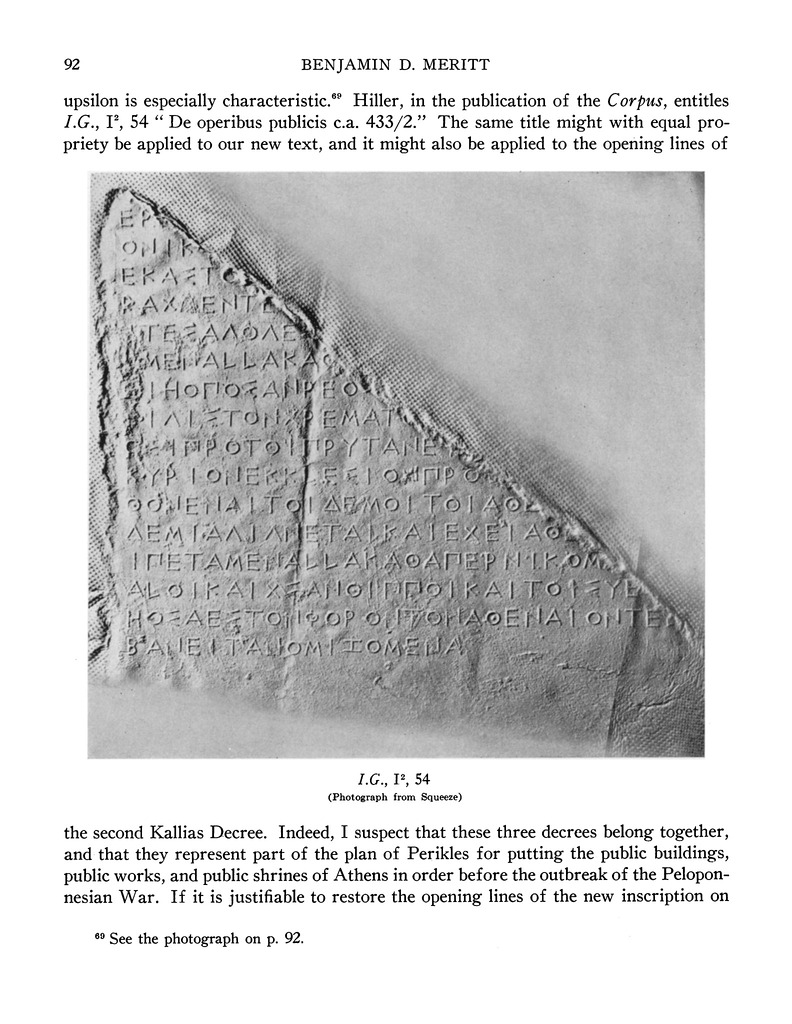 92
BENJAMIN D. MERITT
upsilon is especially characteristic.⁶⁹ Hiller, in the publication of the Corpus, entitles
I.G., I², 54 “ De operibus publicis c.a. 433/2.” The same title might with equal pro-
priety be applied to our new text, and it might also be applied to the opening lines of
ΕΡ
ΟΝΙΚ
ΕΚΑΣΤ
ΡΑΧΜΕΝΤΕ
ΜΕΝΑLLΑΚΑ
ΗΟΠΟΣΑΝΡΕΟ
ΙΛΙΣΤΟΝΧΡΕΜΑΤ
ΠΡΟΤΟΙΠΡΥΤΑΝΕ
ΥΡΙΟΝΕΚΚLΕΣΙΟΝΠΡΟ
ΘΟΝΕΝΑΙΤΟΙΔΕΜΟΙΤΟΙΑΘΕ
ΕΤΑΙΚΑΙΕΧΕΙΑΘ
ΙΠΕΤΑΜΕΝΑLLΑΚΑΘΑΠΕΡΝΙΚΟΜ
ΑLΟΙΚΑΙΧΣΑΝΘΙΠΠΟΙΚΑΙΤΟΙΣΥΕ
ΗΟΣΑΕΣΤΟΝΦΟΡΟΝΤΟΝΑΘΕΝΑΙΟΝΤΕ
ΒΑΝΕΙΤΑΝΟΜΙΖΟΜΕΝΑ
I.G., I², 54
(Photograph from Squeeze)
the second Kallias Decree. Indeed, I suspect that these three decrees belong together,
and that they represent part of the plan of Perikles for putting the public buildings,
public works, and public shrines of Athens in order before the outbreak of the Pelopon-
nesian War. If it is justifiable to restore the opening lines of the new inscription on
⁶⁹ See the photograph on p. 92.